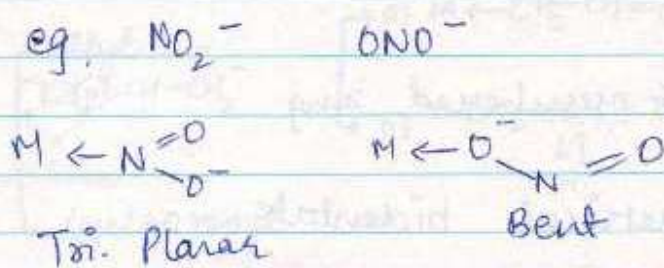 eg. NO₂⁻ ONO⁻
M ← N =O -O⁻ M ← O⁻ - N = O
Tri. Planar Bent